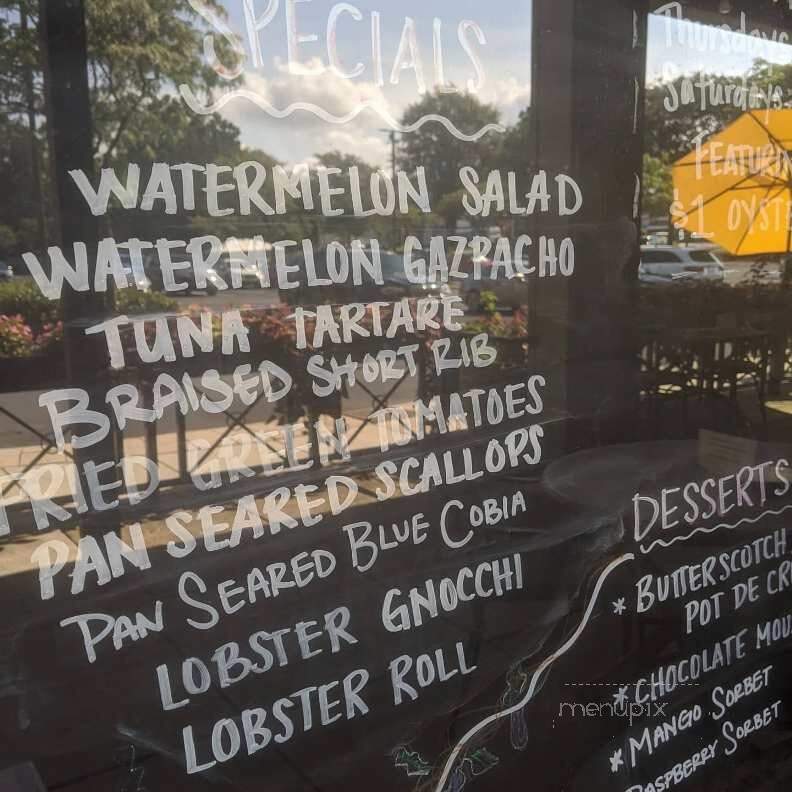 SPECIALS
WATERMELON SALAD
WATERMELON GAZPACHO
TUNA TARTARE
BRAISED SHORT RIB
FRIED GREEN TOMATOES
PAN SEARED SCALLOPS
PAN SEARED BLUE COBIA
LOBSTER GNOCCHI
LOBSTER ROLL
Thursdays
Saturdays
$1
DESSERTS
* BUTTERSCOTCH
POT DE
* CHOCOLATE
* MANGO SORBET
RASPBERRY SORBET
menupix